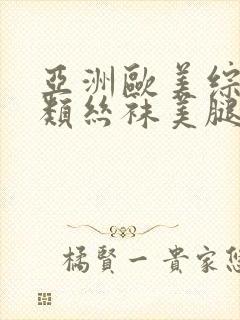 亞洲歐美綜
類絲袜美腿
橘賢一貴家悠